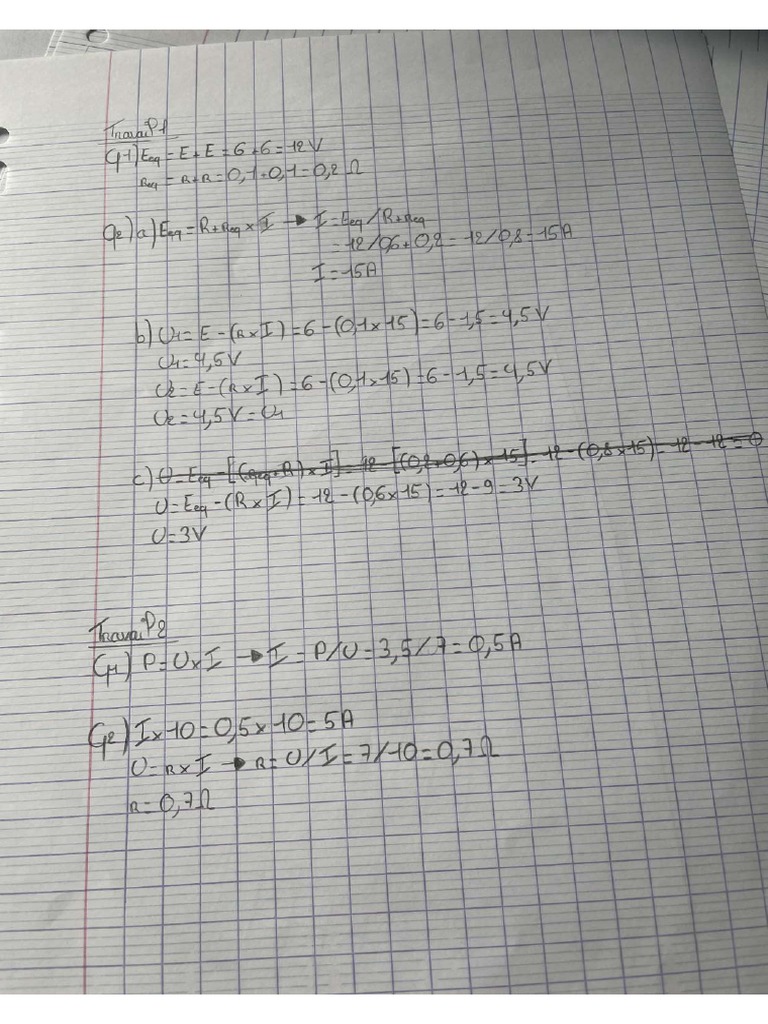 Travail P1
Q1) Eeq = E + E = 6 + 6 = 12 V
Req = R + R = 0,1 + 0,1 = 0,2 Ω
Q2) a) Eeq = R + Req × I → I = Eeq / R + Req
= 12 / 0,6 + 0,2 = 12 / 0,8 = 15 A
I = 15 A
b) U1 = E - (R × I) = 6 - (0,1 × 15) = 6 - 1,5 = 4,5 V
U1 = 4,5 V
U2 = E - (R × I) = 6 - (0,1 × 15) = 6 - 1,5 = 4,5 V
U2 = 4,5 V = U1
c) U = Eeq - [(Req + R) × I] = 12 - [(0,2 + 0,6) × 15] = 12 - (0,8 × 15) = 12 - 12 = 0
U = Eeq - (R × I) = 12 - (0,6 × 15) = 12 - 9 = 3 V
U = 3 V
Travail P2
Q1) P = U × I → I = P / U = 3,5 / 7 = 0,5 A
Q2) I × 10 = 0,5 × 10 = 5 A
U = R × I → R = U / I = 7 / 10 = 0,7 Ω
R = 0,7 Ω